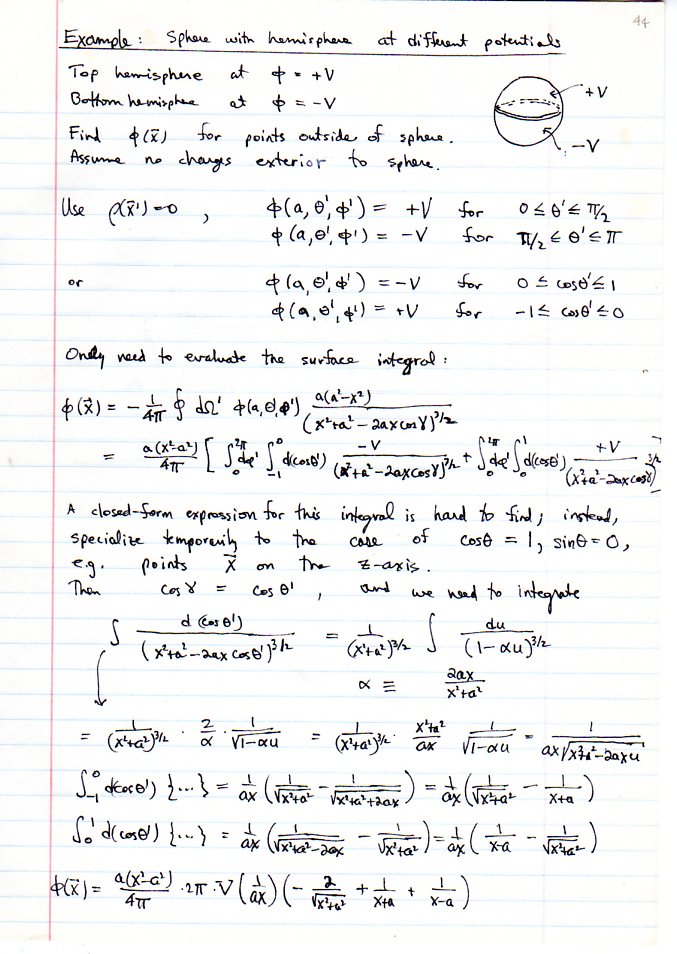 44
Example: Sphere with hemisphere at different potentials
Top hemisphere at ϕ = +V
Bottom hemisphee at ϕ = -V
+V
-V
Find ϕ(x⃗) for points outside of sphere.
Assume no charges exterior to sphere.
Use ρ(x⃗')=0 , ϕ(a, θ', ϕ') = +V for 0 ≤ θ' ≤ π/2
ϕ(a, θ', ϕ') = -V for π/2 ≤ θ' ≤ π
or ϕ(a, θ', ϕ') = -V for 0 ≤ cosθ' ≤ 1
ϕ(a, θ', ϕ') = +V for -1 ≤ cosθ' ≤ 0
Only need to evaluate the surface integral:
ϕ(x⃗) = - 1/4π ∮ dΩ' ϕ(a,θ',ϕ') a(a²-x²)/(x²+a²-2ax cosγ)^3/2
= a(x²-a²)/4π [ ∫_0^2π dϕ' ∫_-1^0 d(cosθ') -V/(x²+a²-2ax cosγ)^3/2 + ∫_0^2π dϕ' ∫_0^1 d(cosθ') +V/(x²+a²-2ax cosγ)^3/2 ]
A closed-form expression for this integral is hard to find; instead,
specialize temporarily to the case of cosθ = 1, sinθ = 0,
e.g. points x⃗ on the z-axis.
Then cosγ = cosθ' , and we need to integrate
∫ d(cosθ')/(x²+a²-2ax cosθ')^3/2 = 1/(x²+a²)^3/2 ∫ du/(1-αu)^3/2
α ≡ 2ax/x²+a²
= 1/(x²+a²)^3/2 · 2/α · 1/√1-αu = 1/(x²+a²)^3/2 · x²+a²/ax 1/√1-αu = 1/ax√x²+a²-2axu
∫_-1^0 d(cosθ') {...} = 1/ax (1/√x²+a² - 1/√x²+a²+2ax) = 1/ax (1/√x²+a² - 1/x+a)
∫_0^1 d(cosθ') {...} = 1/ax (1/√x²+a²-2ax - 1/√x²+a²) = 1/ax (1/x-a - 1/√x²+a²)
ϕ(x⃗) = a(x²-a²)/4π · 2π · V (1/ax) (- 2/√x²+a² + 1/x+a + 1/x-a)